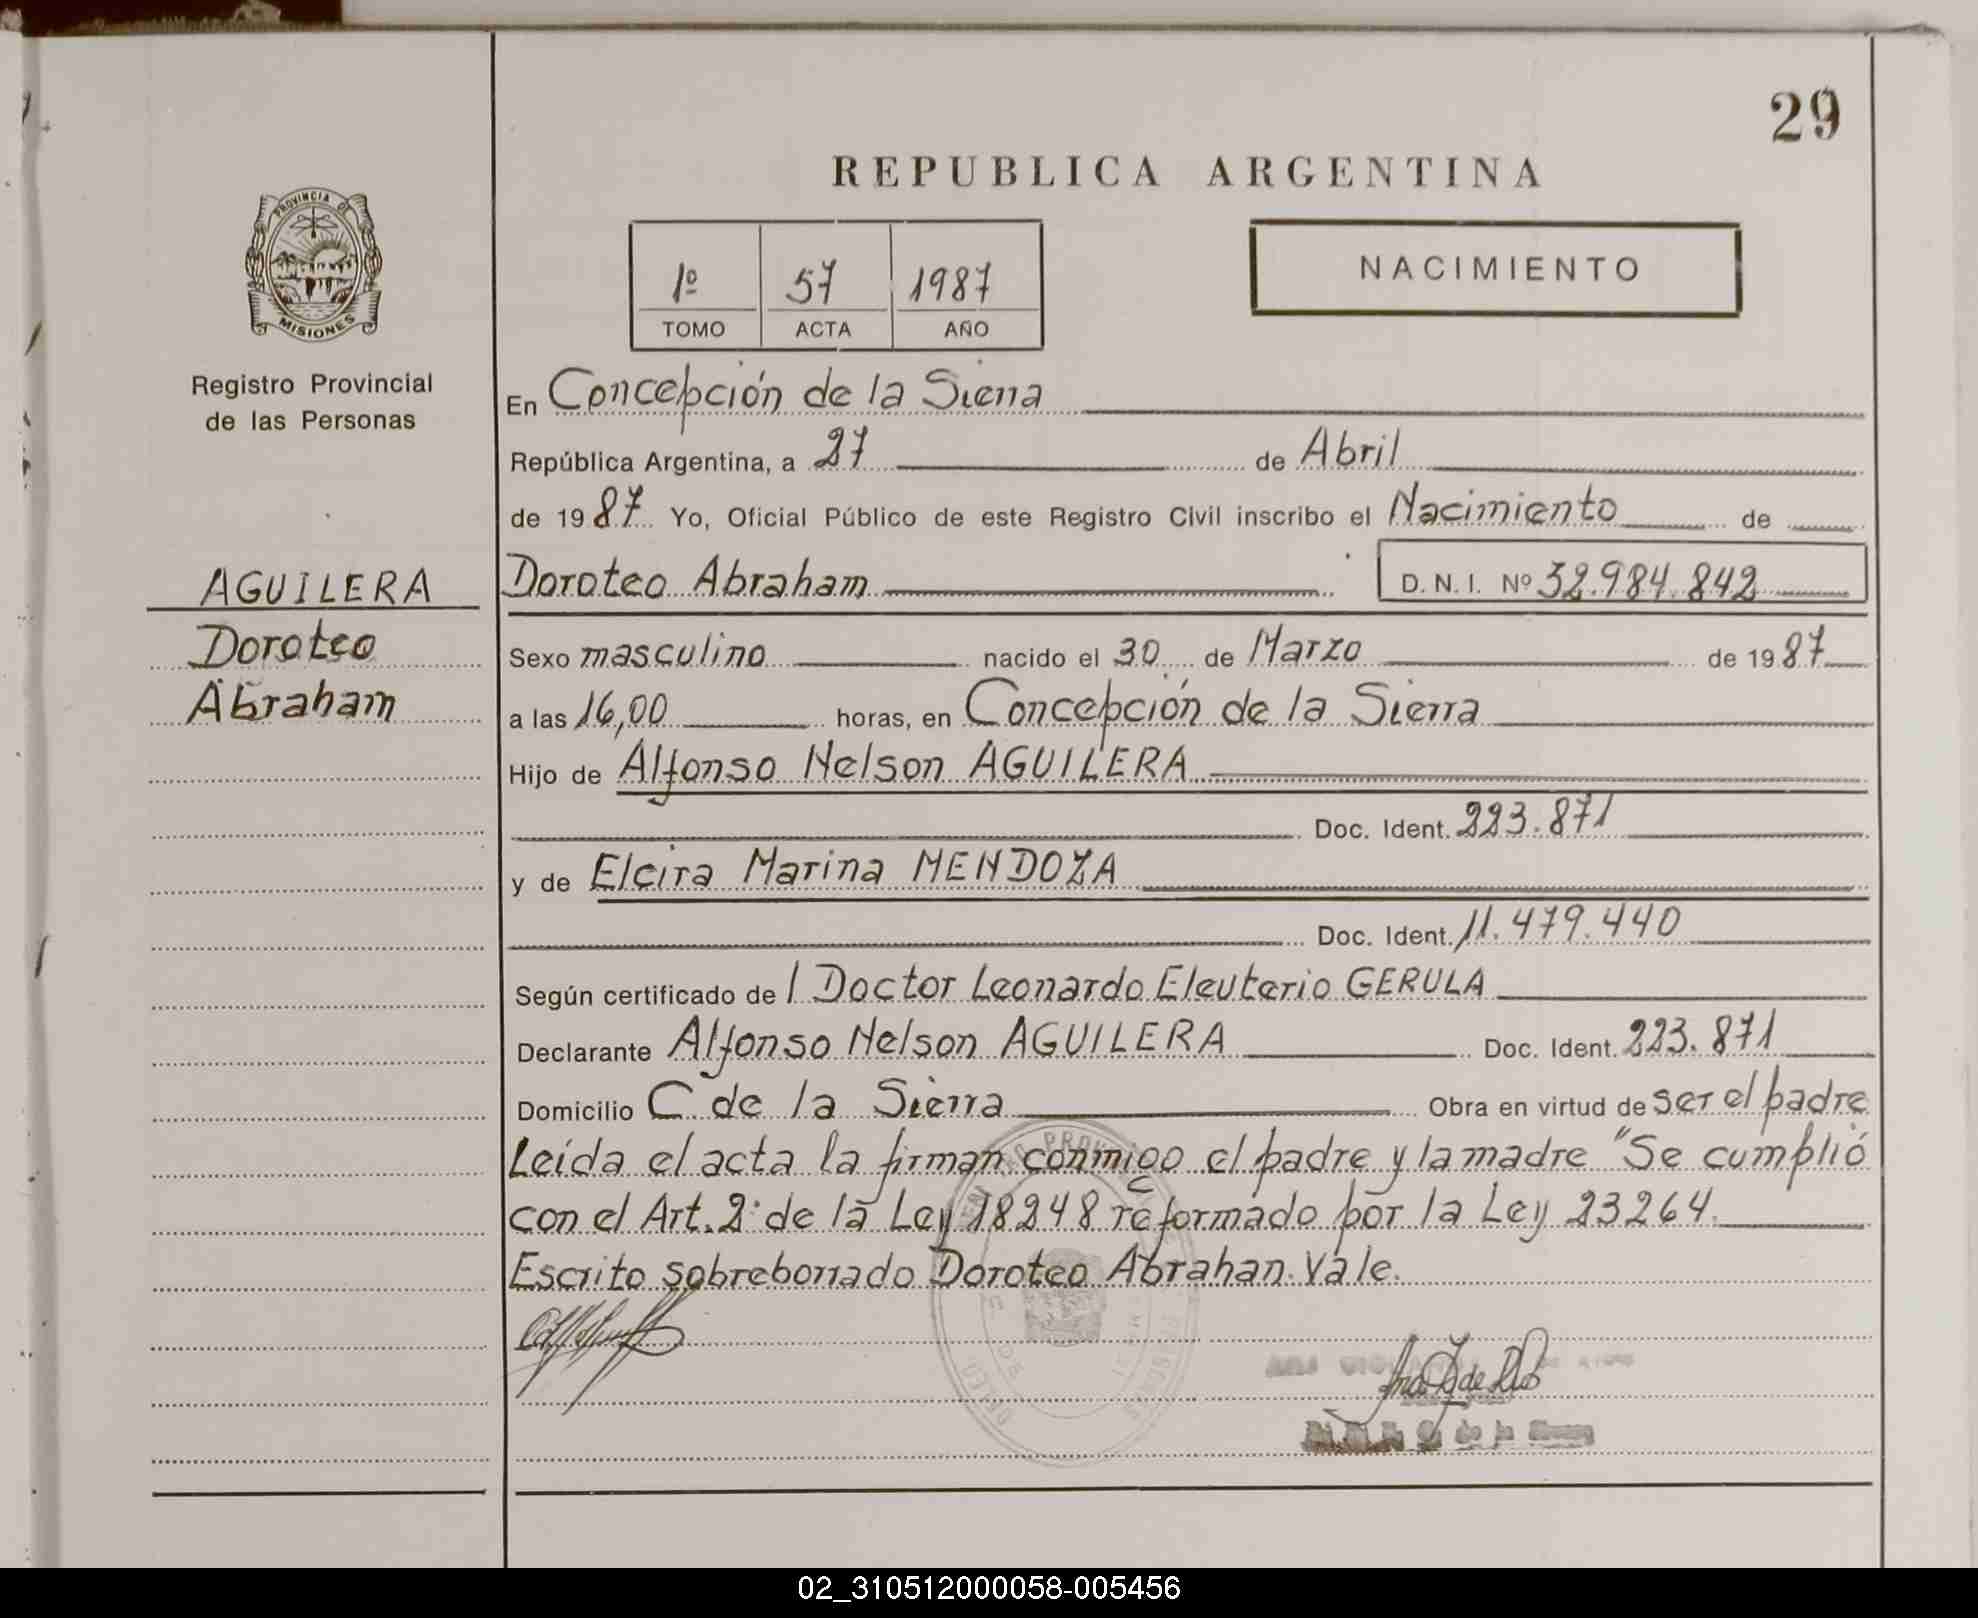 29
REPUBLICA ARGENTINA
PROVINCIA DE
MISIONES
Registro Provincial
de las Personas
1º 57 1987
TOMO ACTA AÑO
NACIMIENTO
En Concepción de la Sierra
República Argentina, a 27 de Abril
de 1987 Yo, Oficial Público de este Registro Civil inscribo el Nacimiento de
AGUILERA
Doroteo
Abraham
Doroteo Abraham D. N. I. Nº 32.984.842
Sexo masculino nacido el 30 de Marzo de 1987
a las 16,00 horas, en Concepción de la Sierra
Hijo de Alfonso Nelson AGUILERA
Doc. Ident. 223.871
y de Elcira Marina MENDOZA
Doc. Ident. 11.479.440
Según certificado de l Doctor Leonardo Eleuterio GERULA
Declarante Alfonso Nelson AGUILERA Doc. Ident. 223.871
Domicilio C. de la Sierra Obra en virtud de ser el padre
Leída el acta la firman conmigo el padre y la madre "Se cumplió
con el Art. 2º de la Ley 18248 reformado por la Ley 23264.
Escrito sobreborrado Doroteo Abrahan. Vale.
de la Sierra
02_310512000058-005456